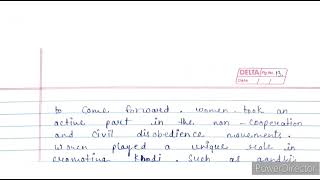 DELTA Pg No. 12
Date / /
to come forward. women took an
active part in the non-cooperation
and civil disobedience movements.
Women played a unique role in
promoting Khadi. Such as gandhi
PowerDirector